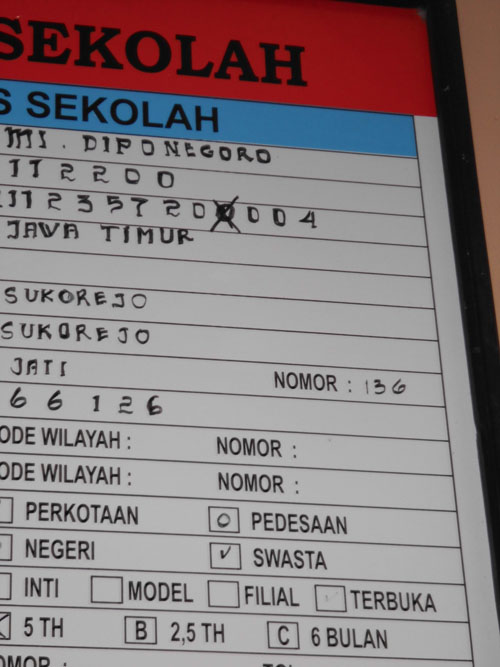 SEKOLAH
S SEKOLAH
MI. DIPONEGORO
112200
112357200004
JAWA TIMUR
SUKOREJO
SUKOREJO
JATI NOMOR : 136
66126
ODE WILAYAH : NOMOR :
ODE WILAYAH : NOMOR :
PERKOTAAN PEDESAAN
NEGERI SWASTA
INTI MODEL FILIAL TERBUKA
5 TH B 2,5 TH C 6 BULAN
OMOR :